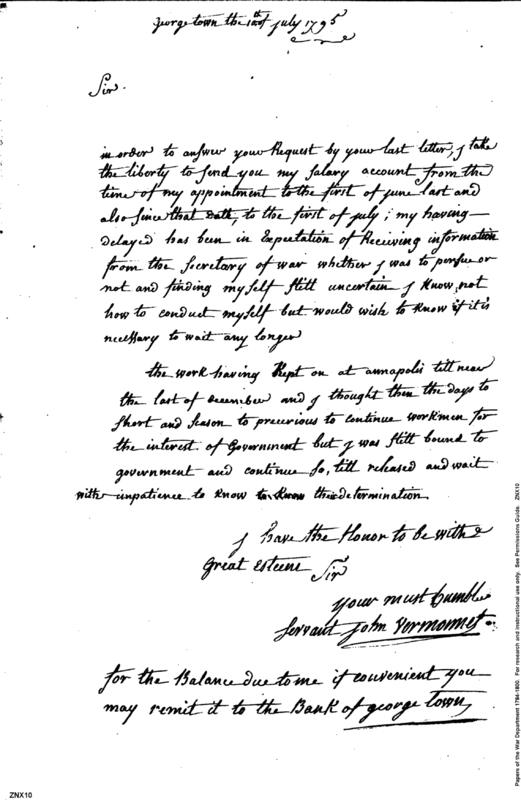 george town the 10th july 1795
Sir.
in order to answer your Request by your last letter, j take
the liberty to send you my salary account from the
time of my appointment to the first of june last and
also since that date, to the first of july; my having
delayed has been in Expectation of Receiving information
from the Secretary of war whether j was to persue or
not and finding myself still uncertain j know not
how to conduct myself but would wish to know if it is
necessary to wait any longer
the work having Kept on at annapolis till near
the last of december and j thought then the days to
short and season to precarious to continue workmen for
the interest of Government but j was still bound to
government and continue so, till released and wait
with inpatience to know to know the determination.
j have the Honor to be with
Great Esteem Sir
your most humble
servant john Vermonnet
for the Balance due to me if convenient you
may remit it to the Bank of george town
Papers of the War Department 1784-1800. For research and instructional use only. See Permissions Guide. ZNX10
ZNX10